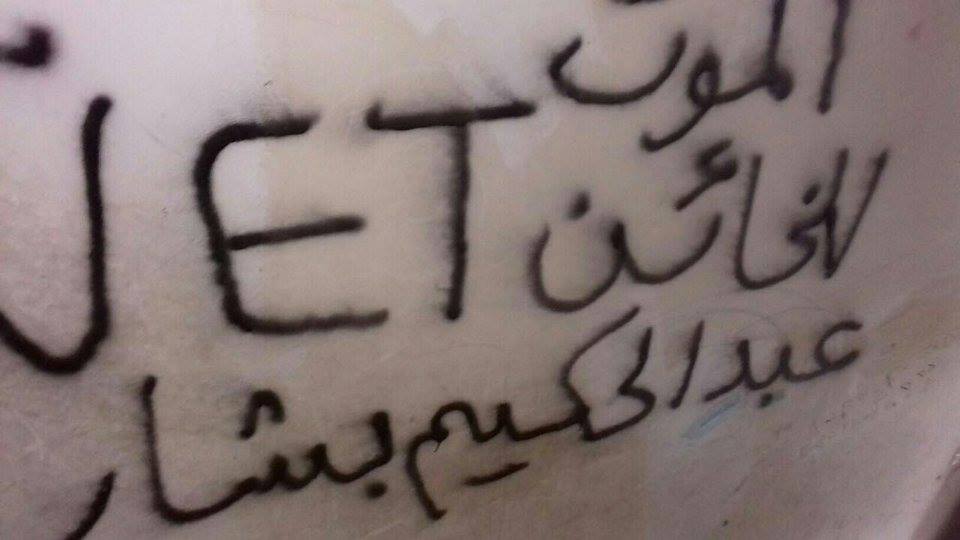 الموت
للخائن
عبدالحكيم بشار
JET